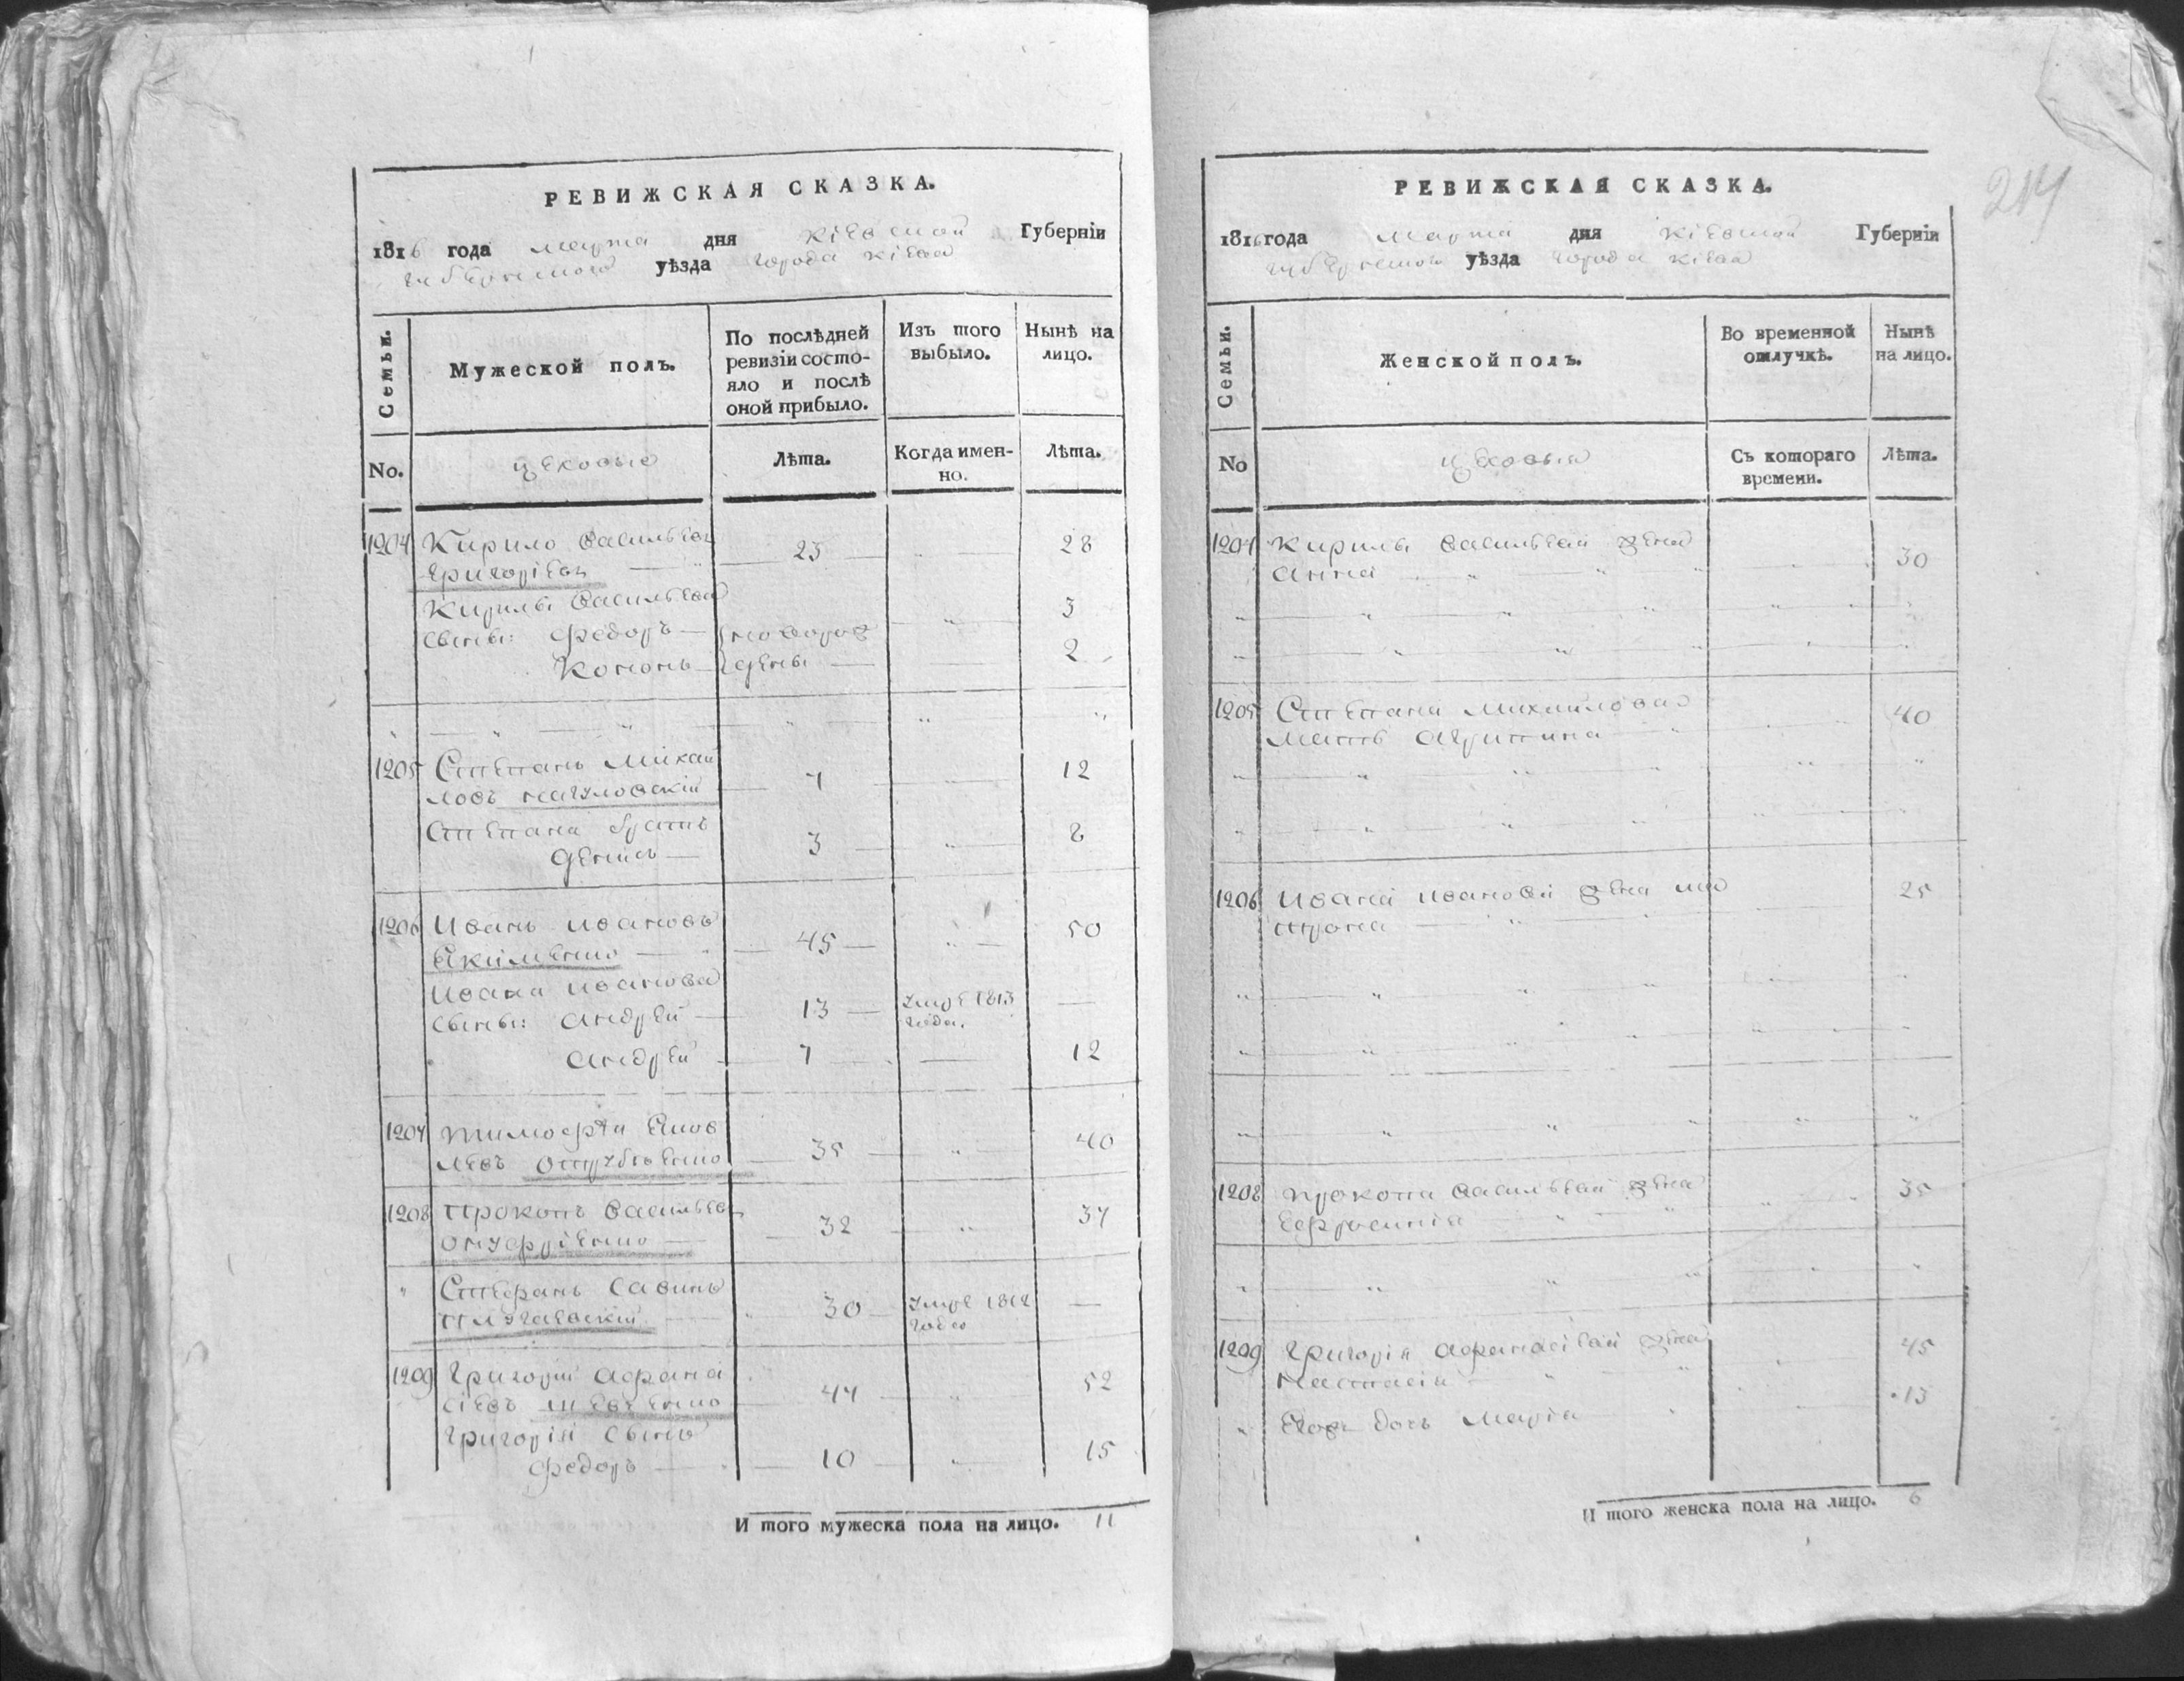 РЕВИЖСКАЯ СКАЗКА.
1816 года марта дня Кіевской Губерніи
губернского уѣзда города Кіева
Семьи.
Мужеской полъ.
По послѣдней ревизіи состо-
яло и послѣ оной прибыло.
Изъ того выбыло.
Нынѣ на лицо.
No.
цеховые
Лѣта.
Когда имен-
но.
Лѣта.
1204 Кирило Васильевъ
Григоріевъ 23 28
Кирилы Васильева 3
сыны: Федоръ новорож
Кононъ дены 2
1205 Степанъ Михай
ловъ 7 12
Степана братъ 3 8
Денисъ
1206 Иванъ Ивановъ 45 50
Екименко
Ивана Иванова
сыны: Андрей 13 умре 1813
года.
Андрей 7 12
1207 Тимофѣй Яков
левъ 35 40
1208 Прокопъ Васильевъ 32 37
Онуфріенко
Стефанъ Савинъ
30 умре 1812
года
1209 Григорій Афана
сіевъ Шевченко 47 52
Григорія сынъ
Федоръ 10 15
И того мужеска пола на лицо. 11
РЕВИЖСКАЯ СКАЗКА.
214
1816 года марта дня Кіевской Губерніи
губернского уѣзда города Кіева
Семьи.
Женской полъ.
Во временной отлучкѣ.
Нынѣ на лицо.
No
цеховыя
Съ котораго времени.
Лѣта.
1204 Кирилы Васильева жена
Анна 30
1205 Степана Михайлова 40
мать Агрипина
1206 Ивана Иванова жена Ма 25
трона
1208 Прокопа Васильева жена 35
Ефросинія
1209 Григорія Афанасіева жена 45
Настасія
Его дочь Марія 13
И того женска пола на лицо. 6